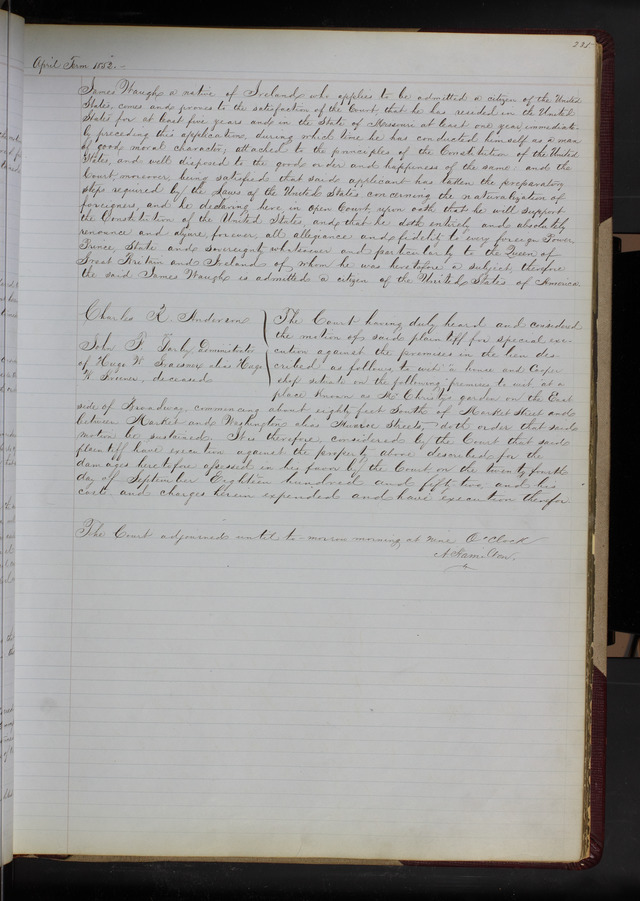 221
April Term 1852.
James Waugh a native of Ireland who applies to be admitted a citizen of the United
States, comes and proves to the satisfaction of the Court, that he has resided in the United
States for at least five years and in the State of Missouri at least one year, immediate-
ly preceding this application, during which time he has conducted himself as a man
of good moral character, attached to the principles of the Constitution of the United
States, and well disposed to the good order and happiness of the same: and the
Court, moreover, being satisfied that said applicant has taken the preparatory
steps required by the Laws of the United States concerning the naturalization of
foreigners, and he declaring here in open Court, upon oath, that he will support
the Constitution of the United States, and that he doth entirely and absolutely
renounce and abjure, forever, all allegiance and fidelity to every foreign Power,
Prince, State and sovereignty whatsoever and particularly to the Queen of
Great Britain and Ireland of whom he was heretofore a subject, therefore
the said James Waugh is admitted a citizen of the United States of America
Charles R. Anderson
John F. Darby, administrator
of Hugo W. alias Hugo
W. deceased
The Court having duly heard and considered
the motion of said plaintiff for special exe-
cution against the premises in the lien des-
cribed as follows to wit: a house and Cooper
shop situate on the following premises to wit: at a
place known as St. Christy garden on the East
side of Broadway, commencing about eighty feet South of Market Street and
between Market and Washington alias Streets, doth order that said
motion be sustained. It is therefore considered by the Court that said
plaintiff have execution against the property above described for the
damages heretofore assessed in his favor by the Court on the twenty fourth
day of September Eighteen hundred and fifty two and his
costs and charges herein expended and have execution therefor
The Court adjourned until to-morrow morning at nine O'Clock
A Hamilton.